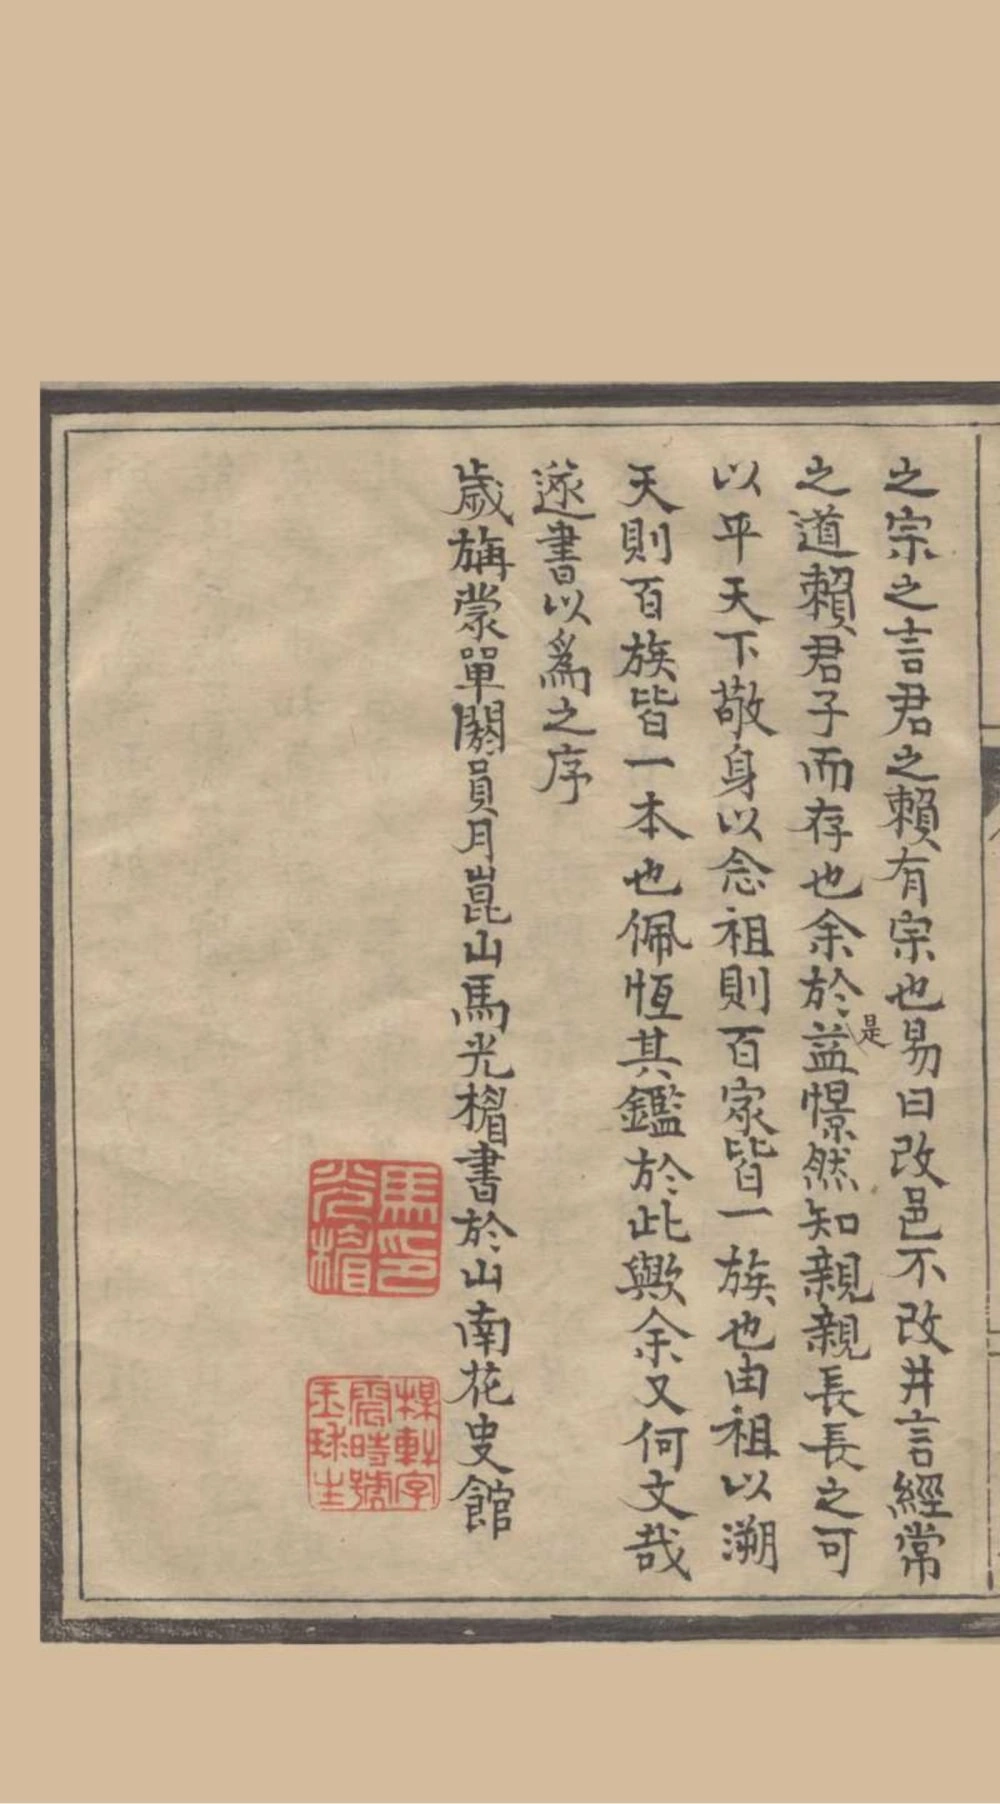 之宗之言君之賴有宗也易曰改邑不改井言經常
之道賴君子而存也余於是益憬然知親親長長之可
以平天下敬身以念祖則百家皆一族也由祖以溯
天則百族皆一本也佩恆其鑑於此歟余又何文哉
遂書以爲之序
歲旃蒙單閼員月崑山馬光楣書於山南花史館
馬光楣印
楳軒字
震時號
玉球生